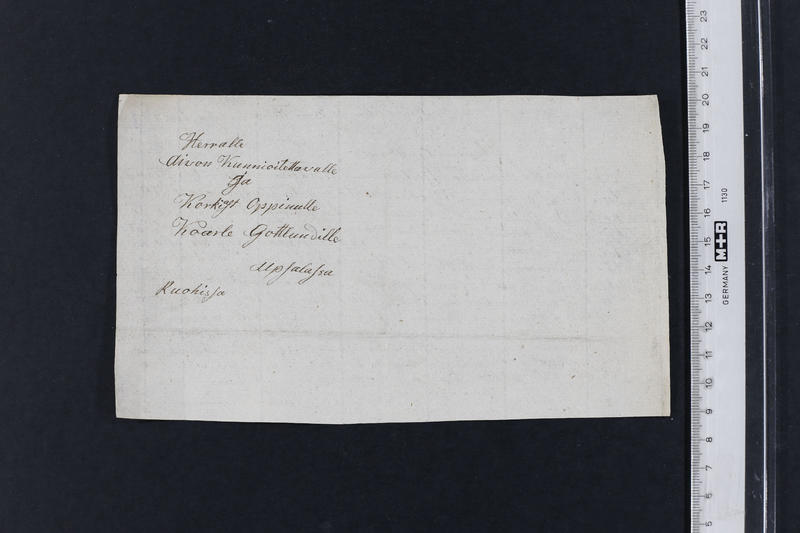 Herralle
Aivon Kunnioitettavalle
Ja
Korkijst Oppinulle
Kaarle Gottlundille
Upsalassa
Ruokissa
23
22
21
20
19
18
17
16
15
14
13
12
11
10
9
8
7
6
5
GERMANY M+R 1130